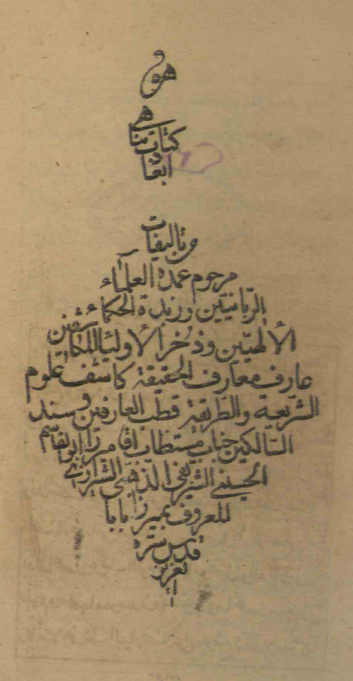 هو
كتاب تناهی
ابعاد
من تاليفات
مرحوم عمدة العلماء
الربانيين وزبدة الحكماء
الألهيين وذخر الأولياء الكاشفين
عارف معارف الحقيقة كاشف علوم
الشريعة والطريقة قطب العارفين وسند
السالكين جناب مستطاب اقا ميرزا ابوالقاسم
الحسيني الشريفي الذهبي الشيرازي
المعروف بميرزا بابا
قدس سره
العزيز